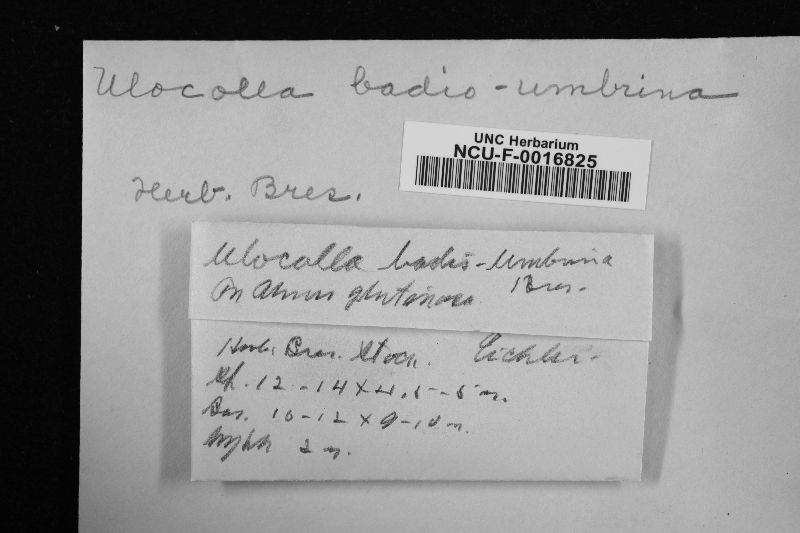 Ulocolla badio-umbrina
UNC Herbarium
NCU-F-0016825
Herb. Bres.
Ulocolla badio-umbrina
On Alnus glutinosa. Bres.
Herb. Bres. Stock. Eichler.
Sp. 12-14 x 4.5-5 m.
Bas. 10-12 x 9-10 m.
Hyph 2 m.